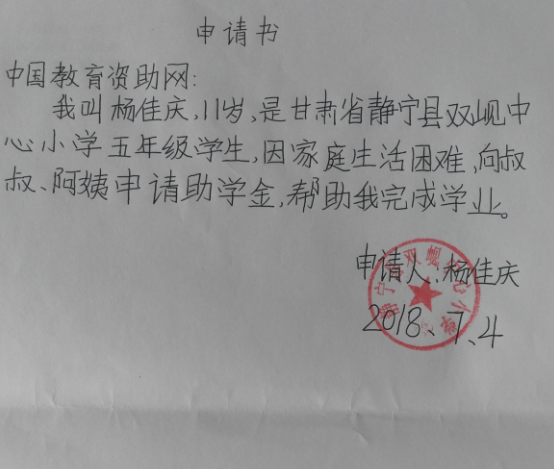 申请书
中国教育资助网:
我叫杨佳庆,11岁,是甘肃省静宁县双岘中
心小学五年级学生,因家庭生活困难,向叔
叔、阿姨申请助学金,帮助我完成学业。
申请人:杨佳庆
2018、7、4